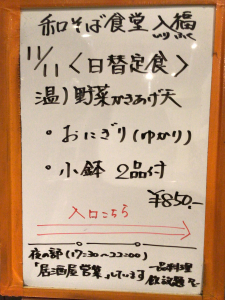 和そば食堂 入福
いりふく
11/11 〈日替定食〉
温)野菜かきあげ天
・おにぎり(ゆかり)
・小鉢 2品付
¥850.-
入口こちら
夜の部(17:30〜22:00)
「居酒屋営業」しています
一品料理
飲放題